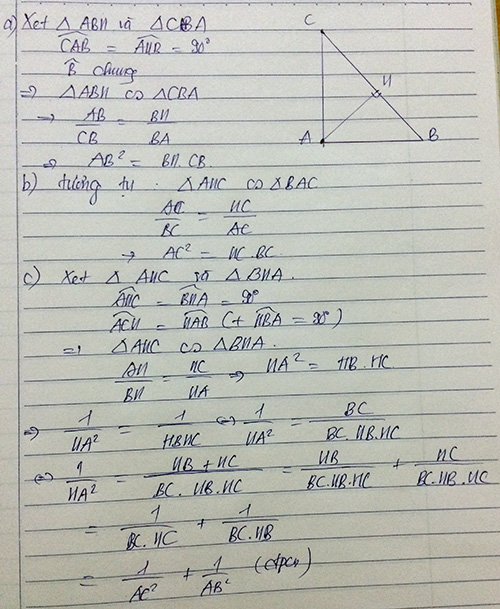 a) Xét △ ABH và △CBA
∠CAB = ∠AHB = 90°
∠B chung
⇒ △ABH ∽ △CBA
→ AB/CB = BH/BA
⇒ AB² = BH.CB.
C
H
A
B
b) tương tự . △AHC ∽ △BAC
AC/BC = HC/AC
→ AC² = HC.BC.
c) Xét △ AHC và △BHA.
∠AHC = ∠BHA = 90°
∠ACH = ∠HAB (+ ∠HBA = 90°)
⇒ △AHC ∽ △BHA.
AH/BH = HC/HA ⇒ HA² = HB.HC.
⇒ 1/HA² = 1/HBHC ⇔ 1/HA² = BC/BC.HB.HC
⇔ 1/HA² = HB + HC/BC.HB.HC = HB/BC.HB.HC + HC/BC.HB.HC
= 1/BC.HC + 1/BC.HB
= 1/AC² + 1/AB² (đpcm)